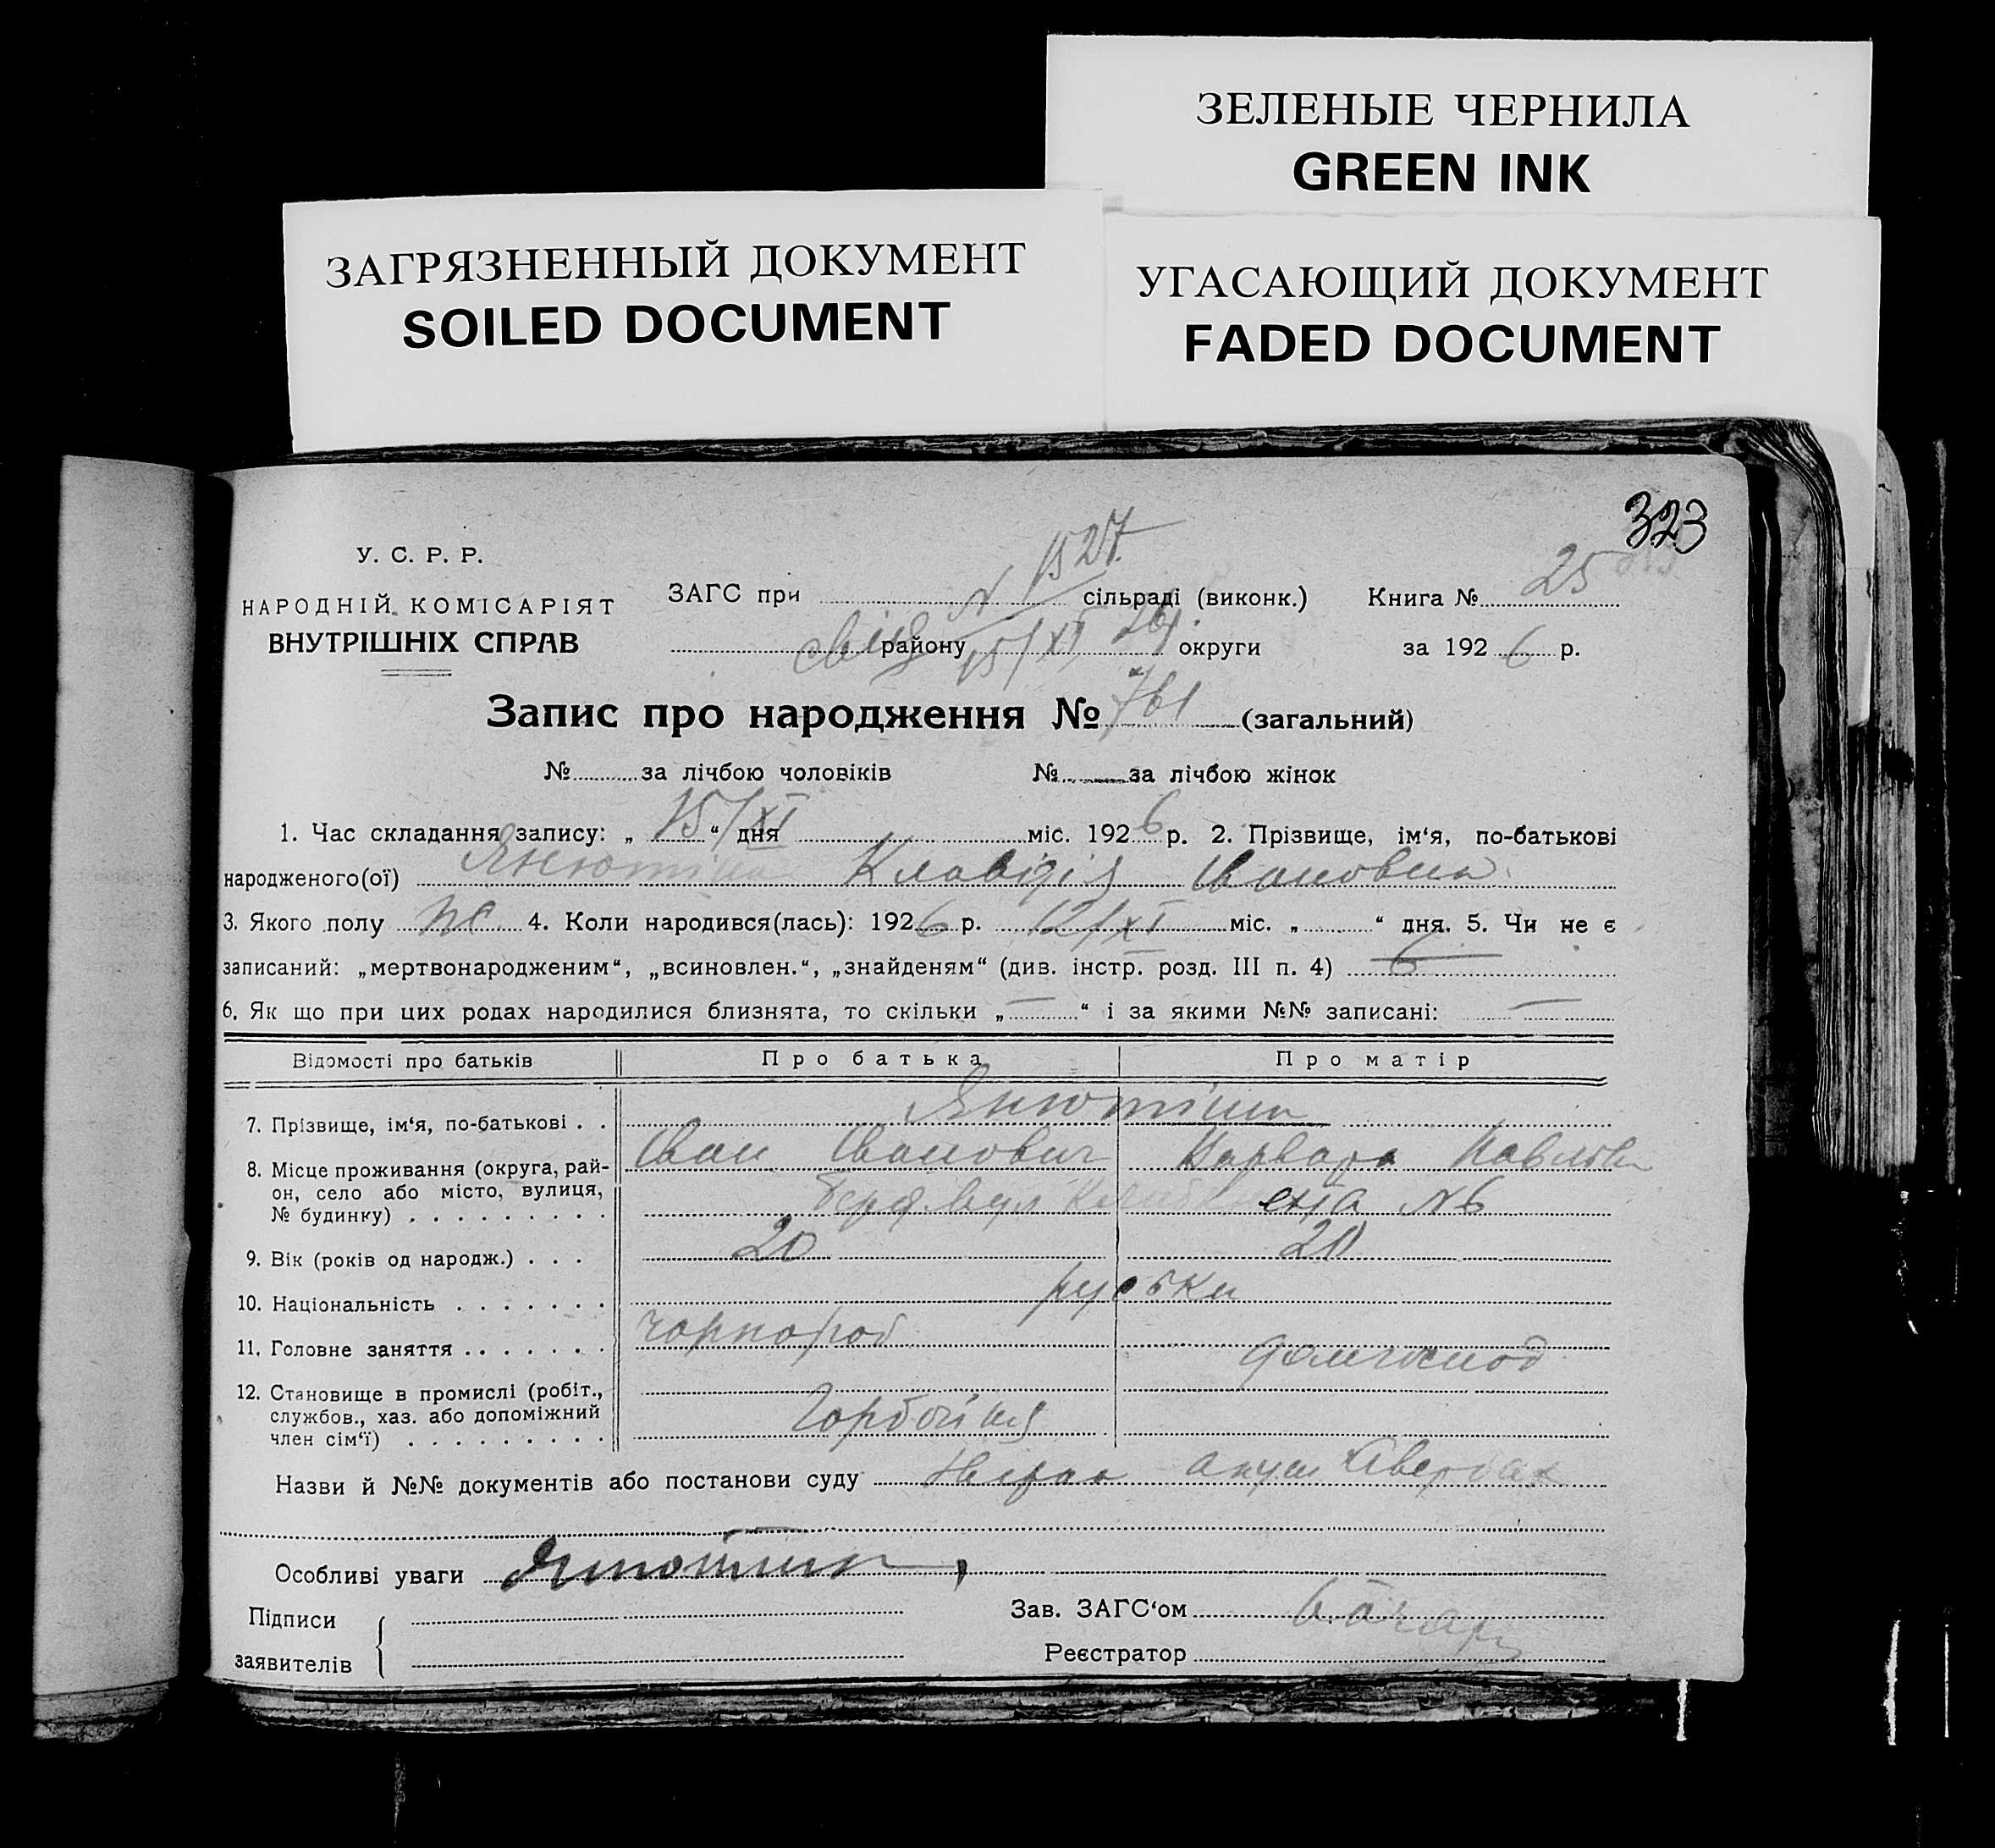 ЗЕЛЕНЫЕ ЧЕРНИЛА
GREEN INK
ЗАГРЯЗНЕННЫЙ ДОКУМЕНТ
SOILED DOCUMENT
УГАСАЮЩИЙ ДОКУМЕНТ
FADED DOCUMENT
323
У. С. Р. Р.
НАРОДНІЙ КОМІСАРІЯТ
ВНУТРІШНІХ СПРАВ
N 1527
ЗАГС при сільраді (виконк.) Книга № 25
району 15/XI 26 округи за 1926 р.
Запис про народження № 761 (загальний)
№ за лічбою чоловіків № за лічбою жінок
1. Час складання запису: „15/XI“ дня міс. 1926 р. 2. Прізвище, ім‘я, по-батькові
народженого(ої) Янютіна Клавідія Івановна
3. Якого полу жс 4. Коли народився(лась): 1926 р. 12/XI міс. „ “ дня. 5. Чи не є
записаний: „мертвонародженим“, „всиновлен.“, „знайденям“ (див. інстр. розд. III п. 4)
6. Як що при цих родах народилися близнята, то скільки „—“ і за якими №№ записані: —
Відомості про батьків Про батька Про матір
7. Прізвище, ім‘я, по-батькові . . Янютіни
Іван Іванович Варвара Павловн
8. Місце проживання (округа, рай-
он, село або місто, вулиця,
№ будинку) . . . . . . . . . N 6
9. Вік (років од народж.) . . . 20 20
10. Національність . . . . . . . руськи
11. Головне заняття . . . . . . . чорнороб домгоспод
12. Становище в промислі (робіт.,
службов., хаз. або допоміжний
член сім‘ї) . . . . . . . . .
Назви й №№ документів або постанови суду акуш
Особливі уваги Янютин
Підписи
заявителів
Зав. ЗАГС‘ом
Реєстратор